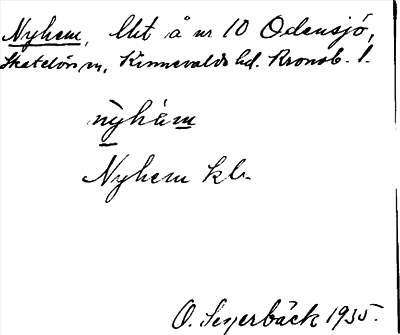 Nyhem, lht å nr 10 Odensjö,
Skatelövs sn, Kinnevalds hd. Kronob. l.
nỳhém
Nyhem kb.
O. Seyerbäck 1935.